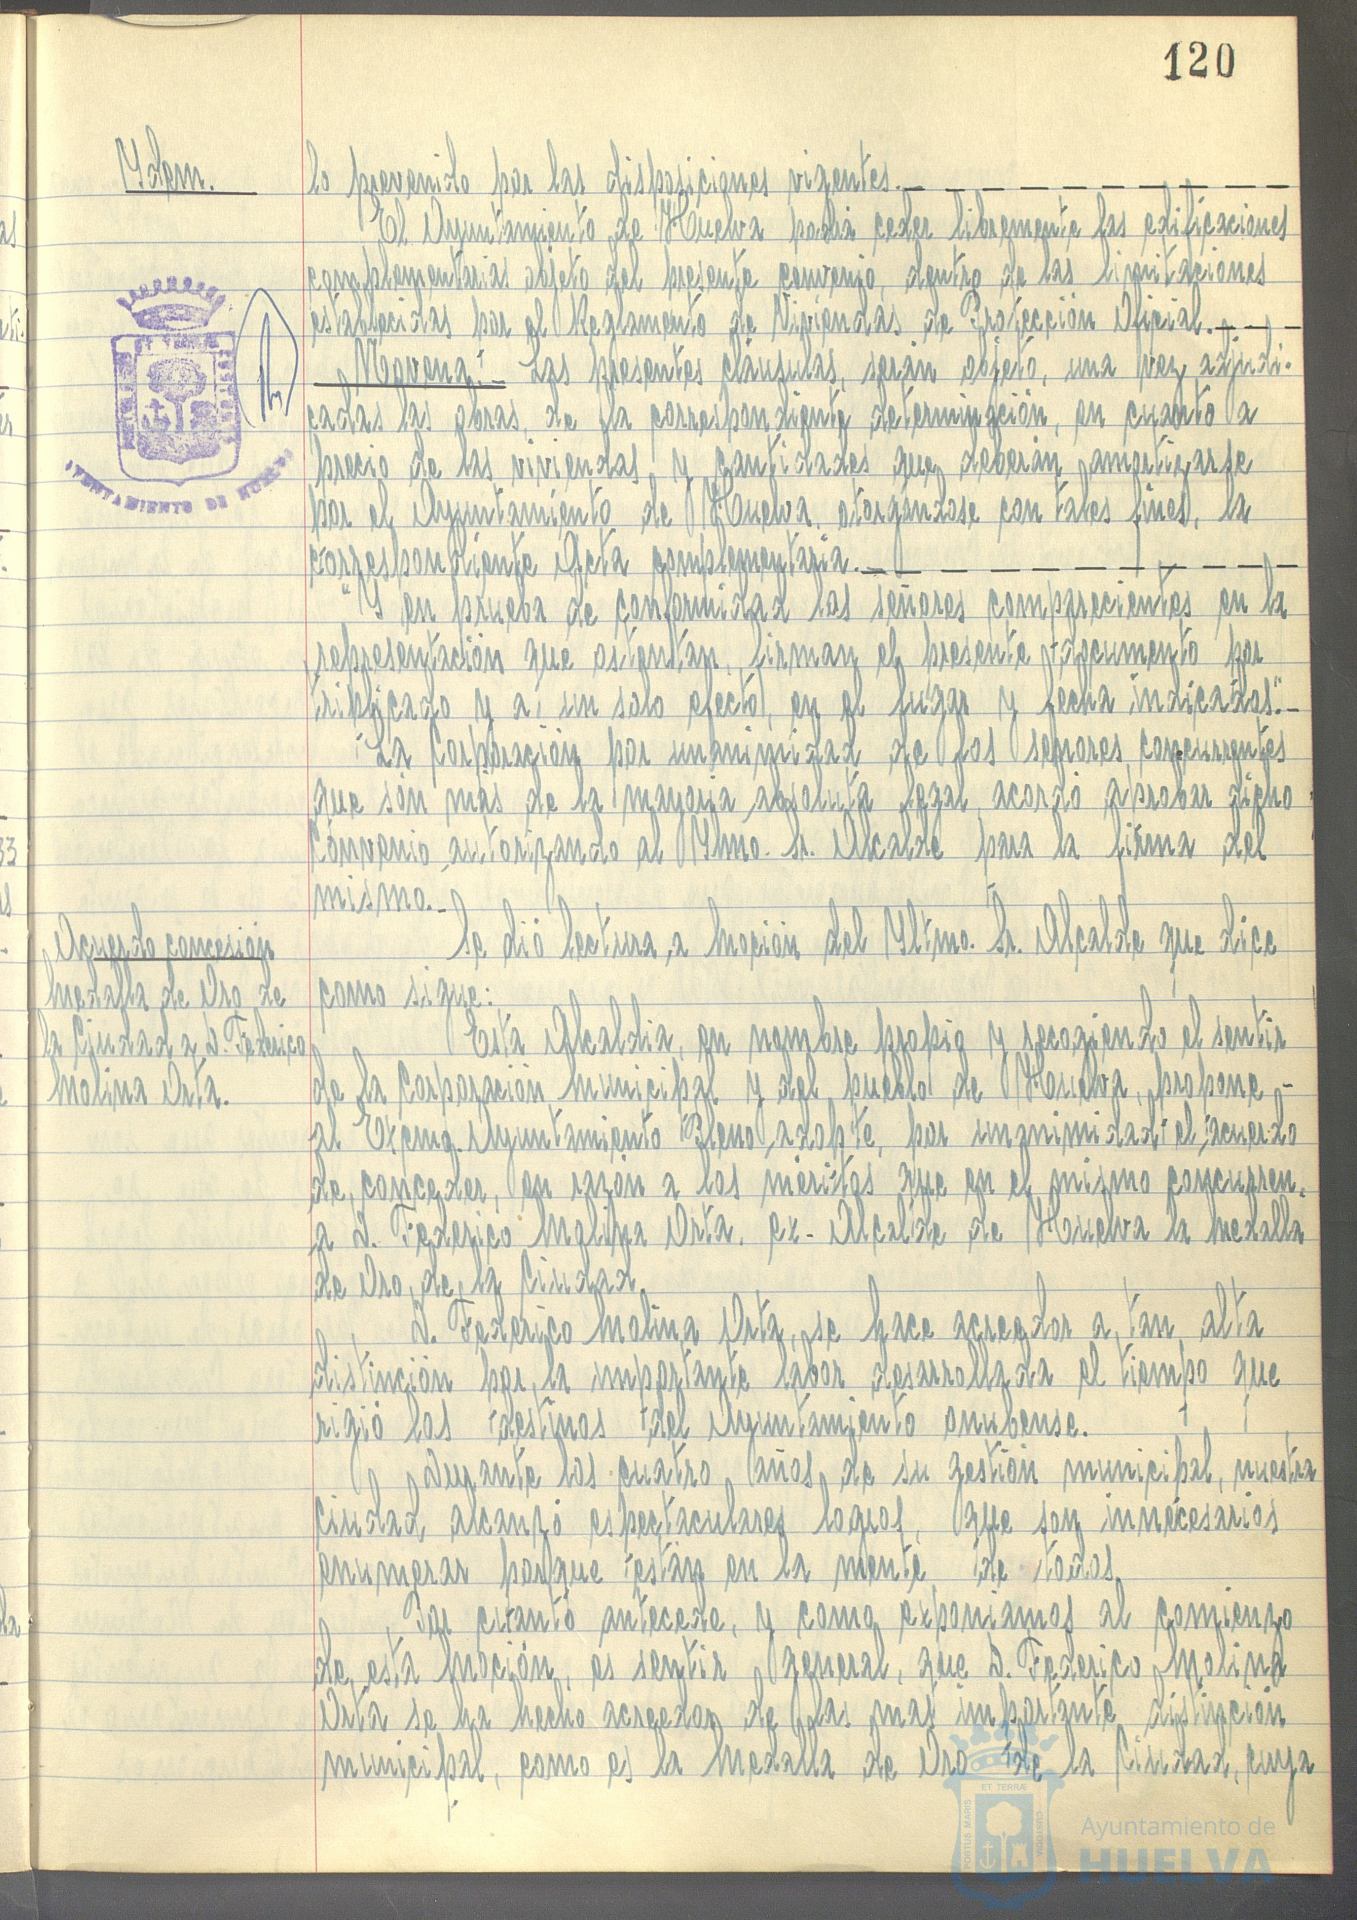 120
Ydem.
lo prevenido por las disposiciones vigentes.
El Ayuntamiento de Huelva podrá ceder libremente las edificaciones
complementarias objeto del presente convenio, dentro de las limitaciones
establecidas por el Reglamento de Viviendas de Protección Oficial.
Novena:- Las presentes cláusulas, serán objeto, una vez adjudi-
cadas las obras, de la correspondiente determinación, en cuanto a
precio de las viviendas y cantidades que deberán amortizarse
por el Ayuntamiento de Huelva, otorgándose con tales fines, la
correspondiente Acta complementaria.
"Y en prueba de conformidad los señores comparecientes en la
representación que ostentan, firman el presente documento por
triplicado y a un solo efecto, en el lugar y fecha indicados".-
La Corporación por unanimidad de los señores concurrentes
que son más de la mayoria absoluta legal acordó aprobar dicho
Convenio autorizando al Yltmo. Sr. Alcalde para la firma del
mismo.-
Acuerdo concesión
Medalla de Oro de
la Ciudad a D. Federico
Molina Orta.
Se dió lectura a Moción del Yltmo. Sr. Alcalde que dice
como sigue:
Esta Alcaldia, en nombre propio y recogiendo el sentir
de la Corporación Municipal y del pueblo de Huelva, propone -
al Excmo. Ayuntamiento Pleno adopte, por unanimidad el acuerdo
de conceder, en razón a los méritos que en el mismo concurren,
a D. Federico Molina Orta, ex-Alcalde de Huelva la Medalla
de Oro de la Ciudad.
D. Federico Molina Orta, se hace acreedor a tan alta
distinción por la importante labor desarrollada el tiempo que
rigió los destinos del Ayuntamiento onubense.
Durante los cuatro años de su gestión municipal, nuestra
ciudad alcanzó espectaculares logros, que son innecesarios
enumerar porque están en la mente de todos.
Por cuanto antecede, y como exponiamos al comienzo
de esta Moción, es sentir general, que D. Federico Molina
Orta se ha hecho acreedor de las mas importante distinción
municipal, como es la Medalla de Oro de la Ciudad, cuya
AYUNTAMIENTO DE HUELVA
PORTUS MARIS ET TERRAE CUSTODIA
Ayuntamiento de
HUELVA